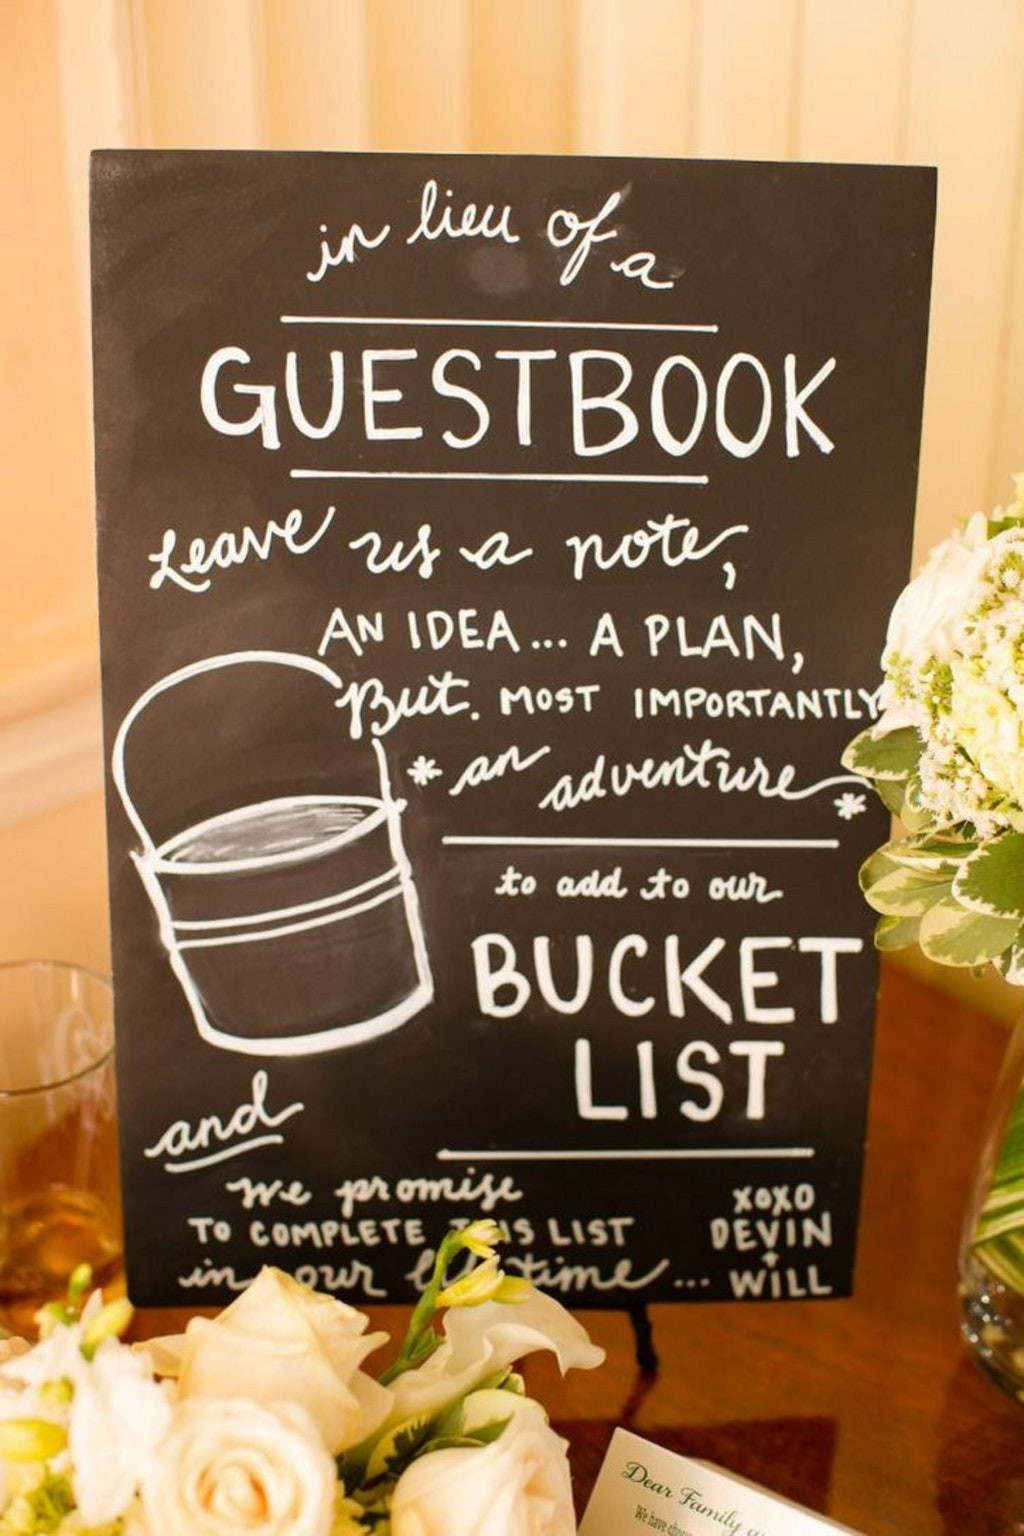 in lieu of a
GUESTBOOK
Leave us a note,
AN IDEA... A PLAN,
But. MOST IMPORTANTLY
* an adventure *
to add to our
BUCKET
LIST
and
We promise
TO COMPLETE THIS LIST
in our lifetime...
XOXO
DEVIN
+
WILL
Dear Family
We have